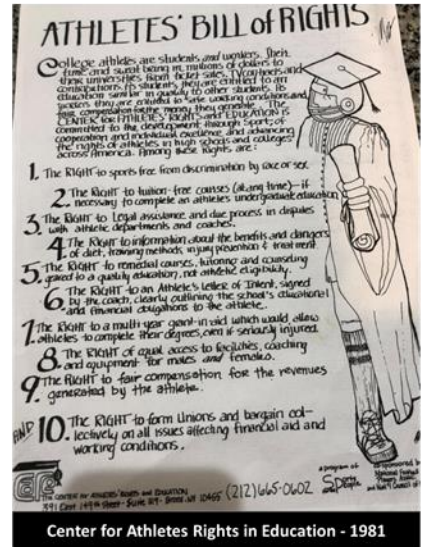 ATHLETES' BILL OF RIGHTS
College athletes are students and workers. Their
time and sweat bring in millions of dollars to
their universities from ticket sales, TV contracts and
contributions. As students, they are entitled to an
education similar in quality to other students. As
workers they are entitled to safe working conditions and
fair compensation for the money they generate. The
CENTER for ATHLETES' RIGHTS and EDUCATION is
committed to the development through Sport, of
cooperation and individual excellence and advancing
the rights of athletes in high schools and colleges
across America. Among these Rights are:
1. The RIGHT to sports free from discrimination by race or sex.
2. The RIGHT to tuition-free courses (at any time)—if
necessary to complete an athletes undergraduate education
3. The RIGHT to Legal assistance and due process in disputes
with athletic departments and coaches.
4. The RIGHT to information about the benefits and dangers
of diet, training methods, injury prevention & treatment.
5. The RIGHT to remedial courses, tutoring and counseling
geared to a quality education, not athletic eligibility.
6. The RIGHT to an Athlete's Letter of Intent, signed
by the coach, clearly outlining the school's educational
and financial obligations to the athlete.
7. The RIGHT to a multi year grant-in aid which would allow
athletes to complete their degrees, even if seriously injured.
8. The RIGHT of equal access to facilities, coaching
and equipment for males and females.
9. The RIGHT to fair compensation for the revenues
generated by the athlete.
AND 10. The RIGHT to form Unions and bargain col-
lectively on all issues affecting financial aid and
working conditions.
a program of
Sports for the People
co-sponsored by
National Football
Players Assoc.
The CENTER for ATHLETES' RIGHTS and EDUCATION
391 East 149th Street - Suite - Bronx, NY 10455 (212) 665-0602
Center for Athletes Rights in Education - 1981